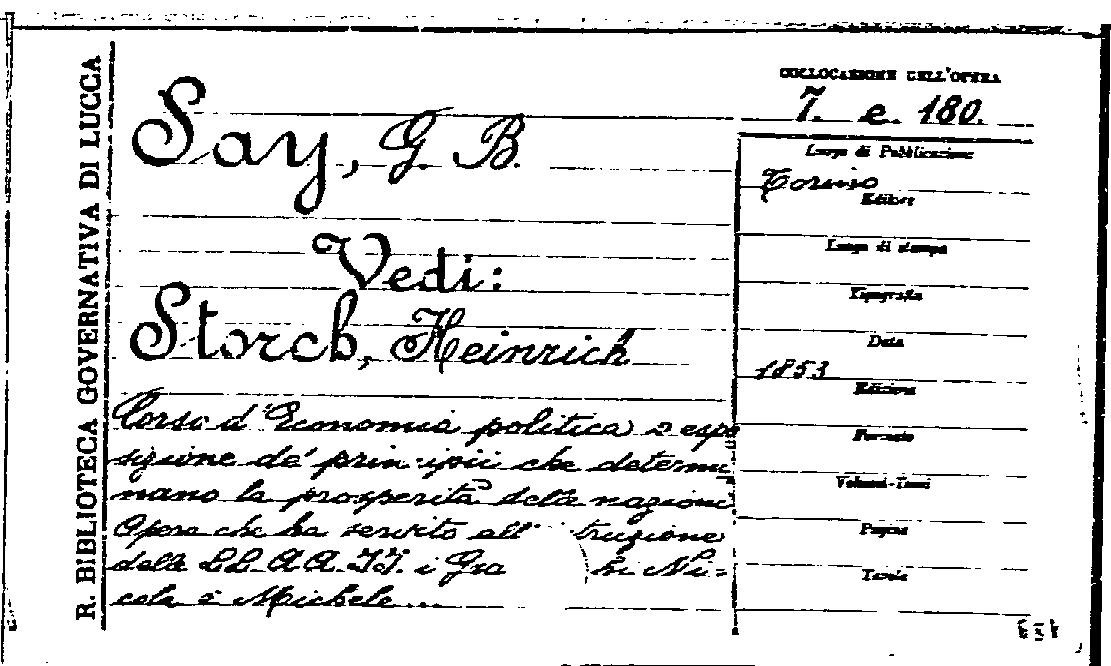 R. BIBLIOTECA GOVERNATIVA DI LUCCA
COLLOCAZIONE DELL'OPERA
7. e. 180.
Say, G. B.
Vedi:
Storch, Heinrich
Corso d'Economia politica o espo
sizione de' principii che determi
nano la prosperità delle nazioni
Opera che ha servito all' truzione
delle LL. AA. II. i Gra hi Ni=
cola e Michele ...
Luogo di Pubblicazione
Torino
Editore
Luogo di stampa
Tipografia
Data
1853
Edizione
Formato
Volumi-Tomi
Pagine
Tavole